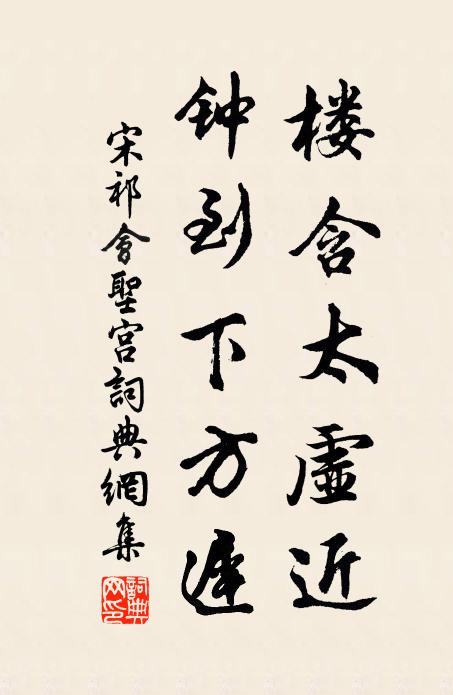 楼含太虚近
钟到下方遲
宋祁會聖宫詞典網集
詞典网印